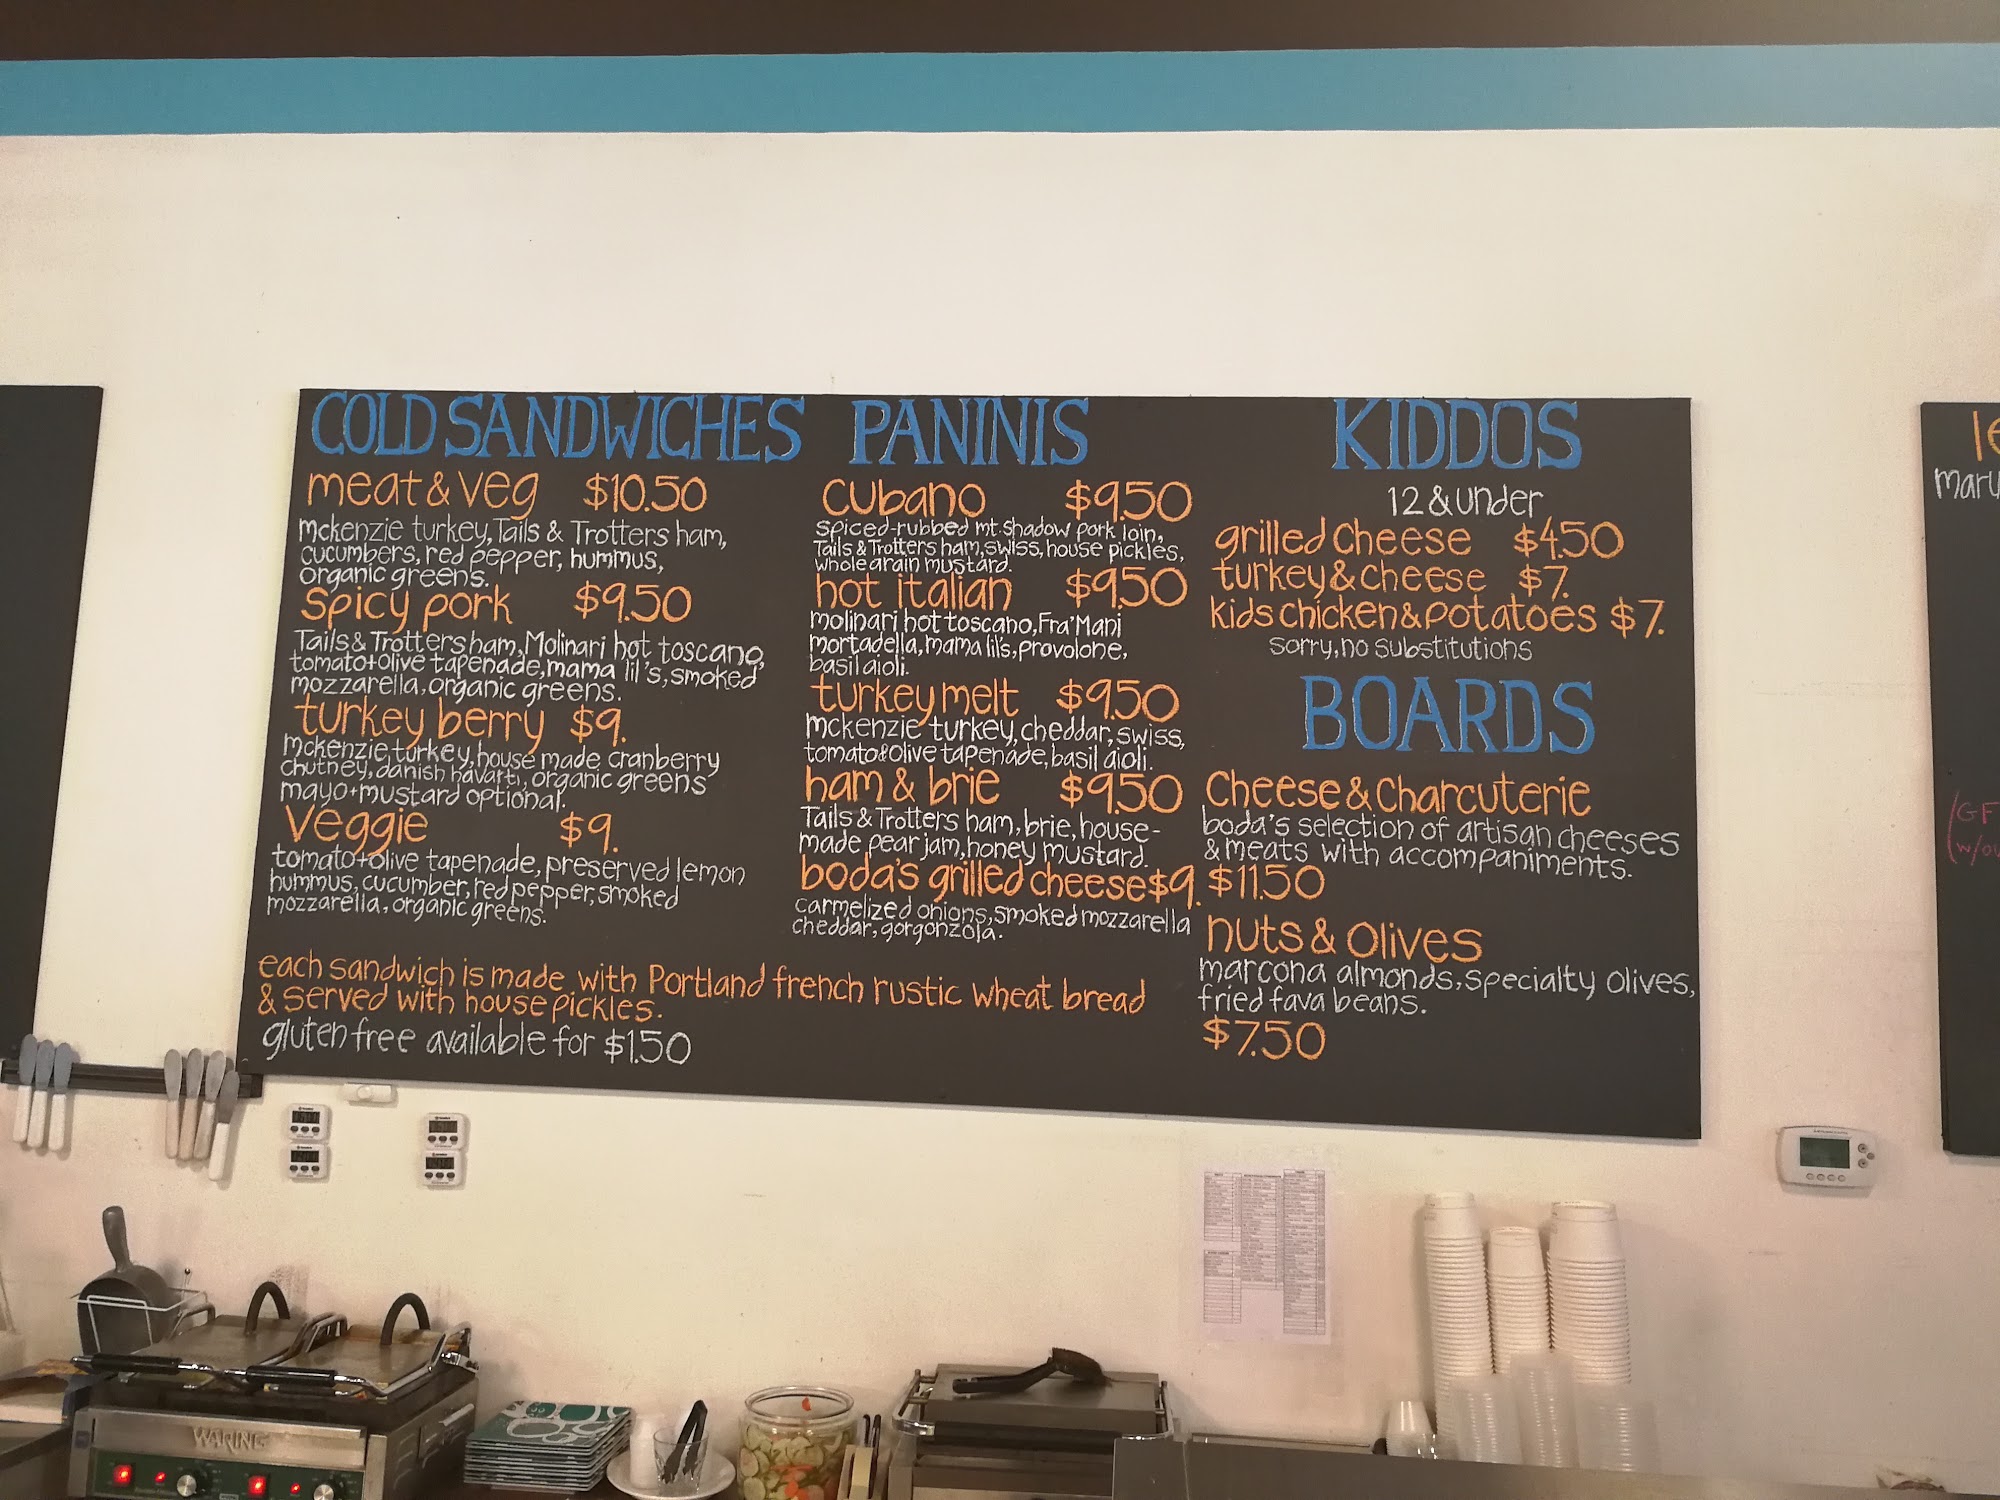 COLD SANDWICHES
meat & veg $10.50
mckenzie turkey, Tails & Trotters ham,
cucumbers, red pepper, hummus,
organic greens.
spicy pork $9.50
Tails & Trotters ham, Molinari hot toscano,
tomato+olive tapenade, mama lil's, smoked
mozzarella, organic greens.
turkey berry $9.
mckenzie turkey, house made cranberry
chutney, danish havarti, organic greens
mayo+mustard optional.
veggie $9.
tomato+olive tapenade, preserved lemon
hummus, cucumber, red pepper, smoked
mozzarella, organic greens.
PANINIS
cubano $9.50
spiced-rubbed mt. shadow pork loin,
Tails & Trotters ham, swiss, house pickles,
whole grain mustard.
hot italian $9.50
molinari hot toscano, Fra'Mani
mortadella, mama lil's, provolone,
basil aioli.
turkey melt $9.50
mckenzie turkey, cheddar, swiss,
tomato&olive tapenade, basil aioli.
ham & brie $9.50
Tails & Trotters ham, brie, house-
made pear jam, honey mustard.
boda's grilled cheese $9.
carmelized onions, smoked mozzarella
cheddar, gorgonzola.
each sandwich is made with Portland french rustic wheat bread
& served with house pickles.
gluten free available for $1.50
KIDDOS
12 & under
grilled cheese $4.50
turkey & cheese $7.
kids chicken & potatoes $7.
sorry, no substitutions
BOARDS
Cheese & Charcuterie
boda's selection of artisan cheeses
& meats with accompaniments.
$11.50
nuts & olives
marcona almonds, specialty olives,
fried fava beans.
$7.50
le
maru
(GF
w/ou
WARING